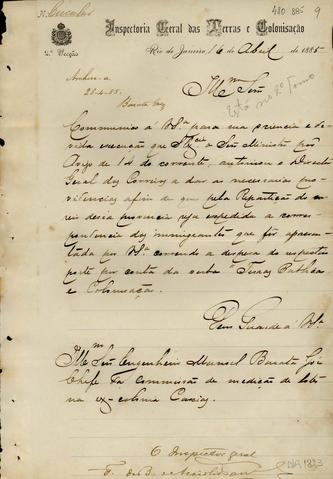 N. Circular
480 885 9
Inspectoria Geral das Terras e Colonisação
2.ª Secção
Rio de Janeiro, 16 de Abril de 1885
Archive-a
28-4-85.
Barata Góes
Illmº Snr
Está no 2º Tomo
Communico á Vª Sª para sua sciencia e de-
vida execução que S. Exª o Snr Ministro por
Aviso de 14 do corrente, autorisou o Director
Geral dos Correios a dar as necessarias pro-
videncias afim de que pela Repartição do cor-
reio dessa provincia seja expedida a corres-
pondencia dos immigrantes que for apresen-
tada por Vª Sª correndo a despeza do respectivo
porte por conta da verba "Terras Publicas
e Colonisação.
Deus Guarde á Vª Sª
Illmº Snr Engenheiro Manoel Barata Góes
Chefe da commissão de medição de lotes
na ex-colonia Caxias.
O Inspector geral
F. de B. e Accioli de